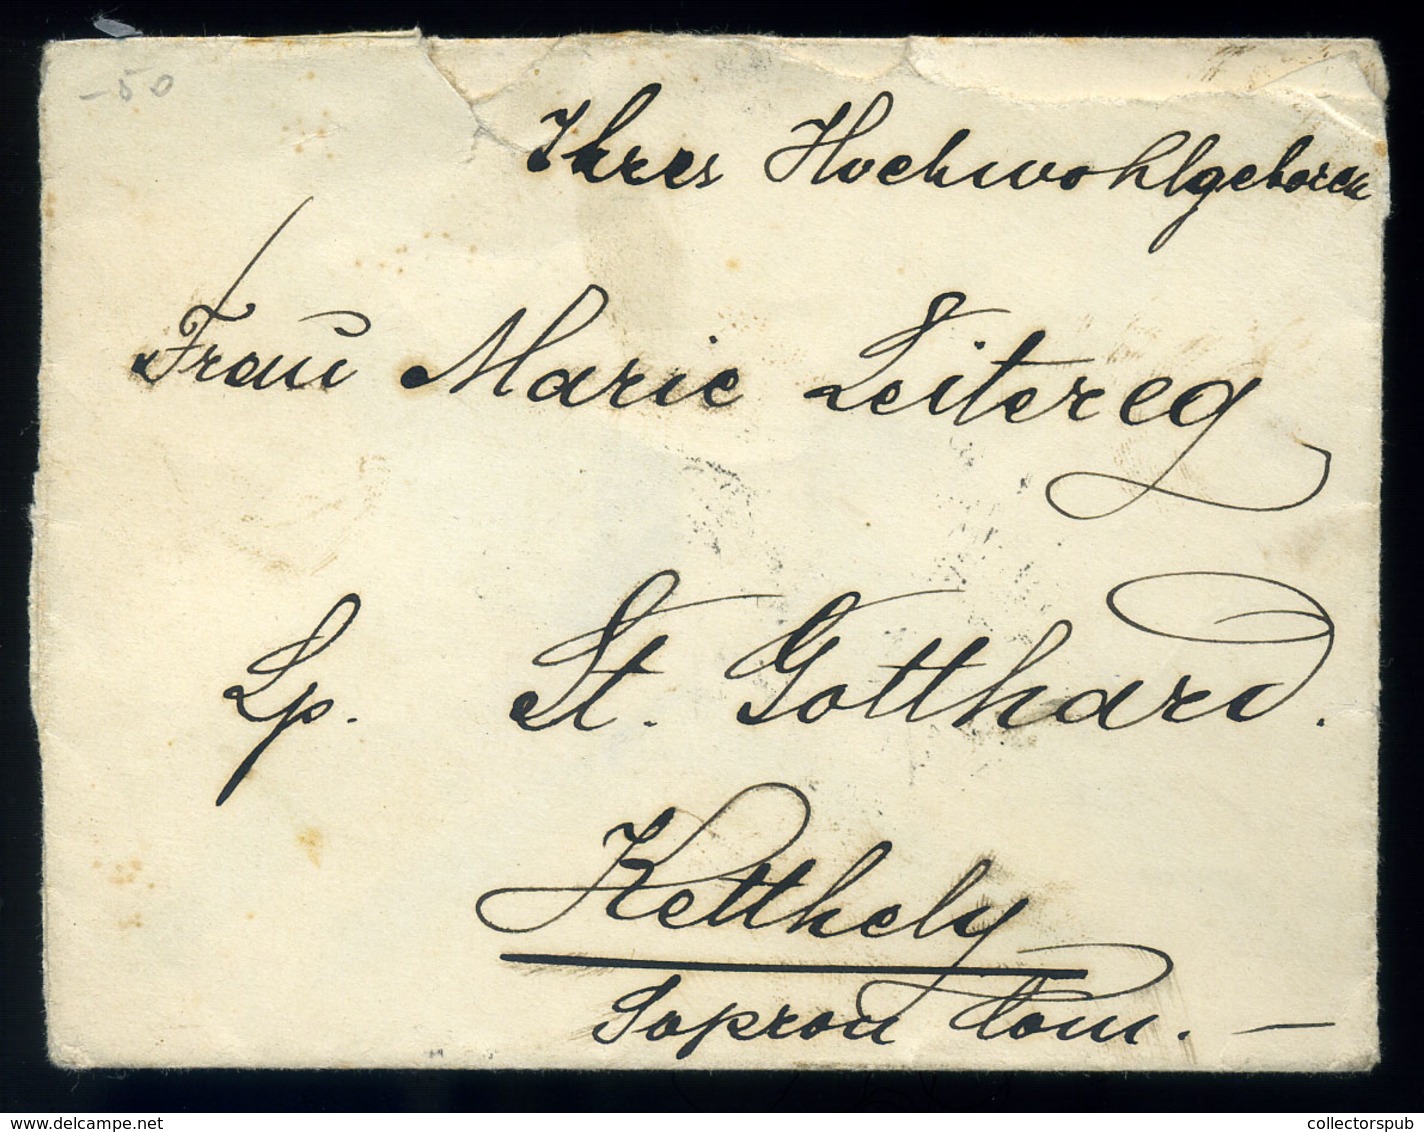 -50
Ihres Hochwohlgeboren
Frau Marie Leitereg
Lp. St. Gotthard.
Ketthely
Sopron Com. —
collectorspub